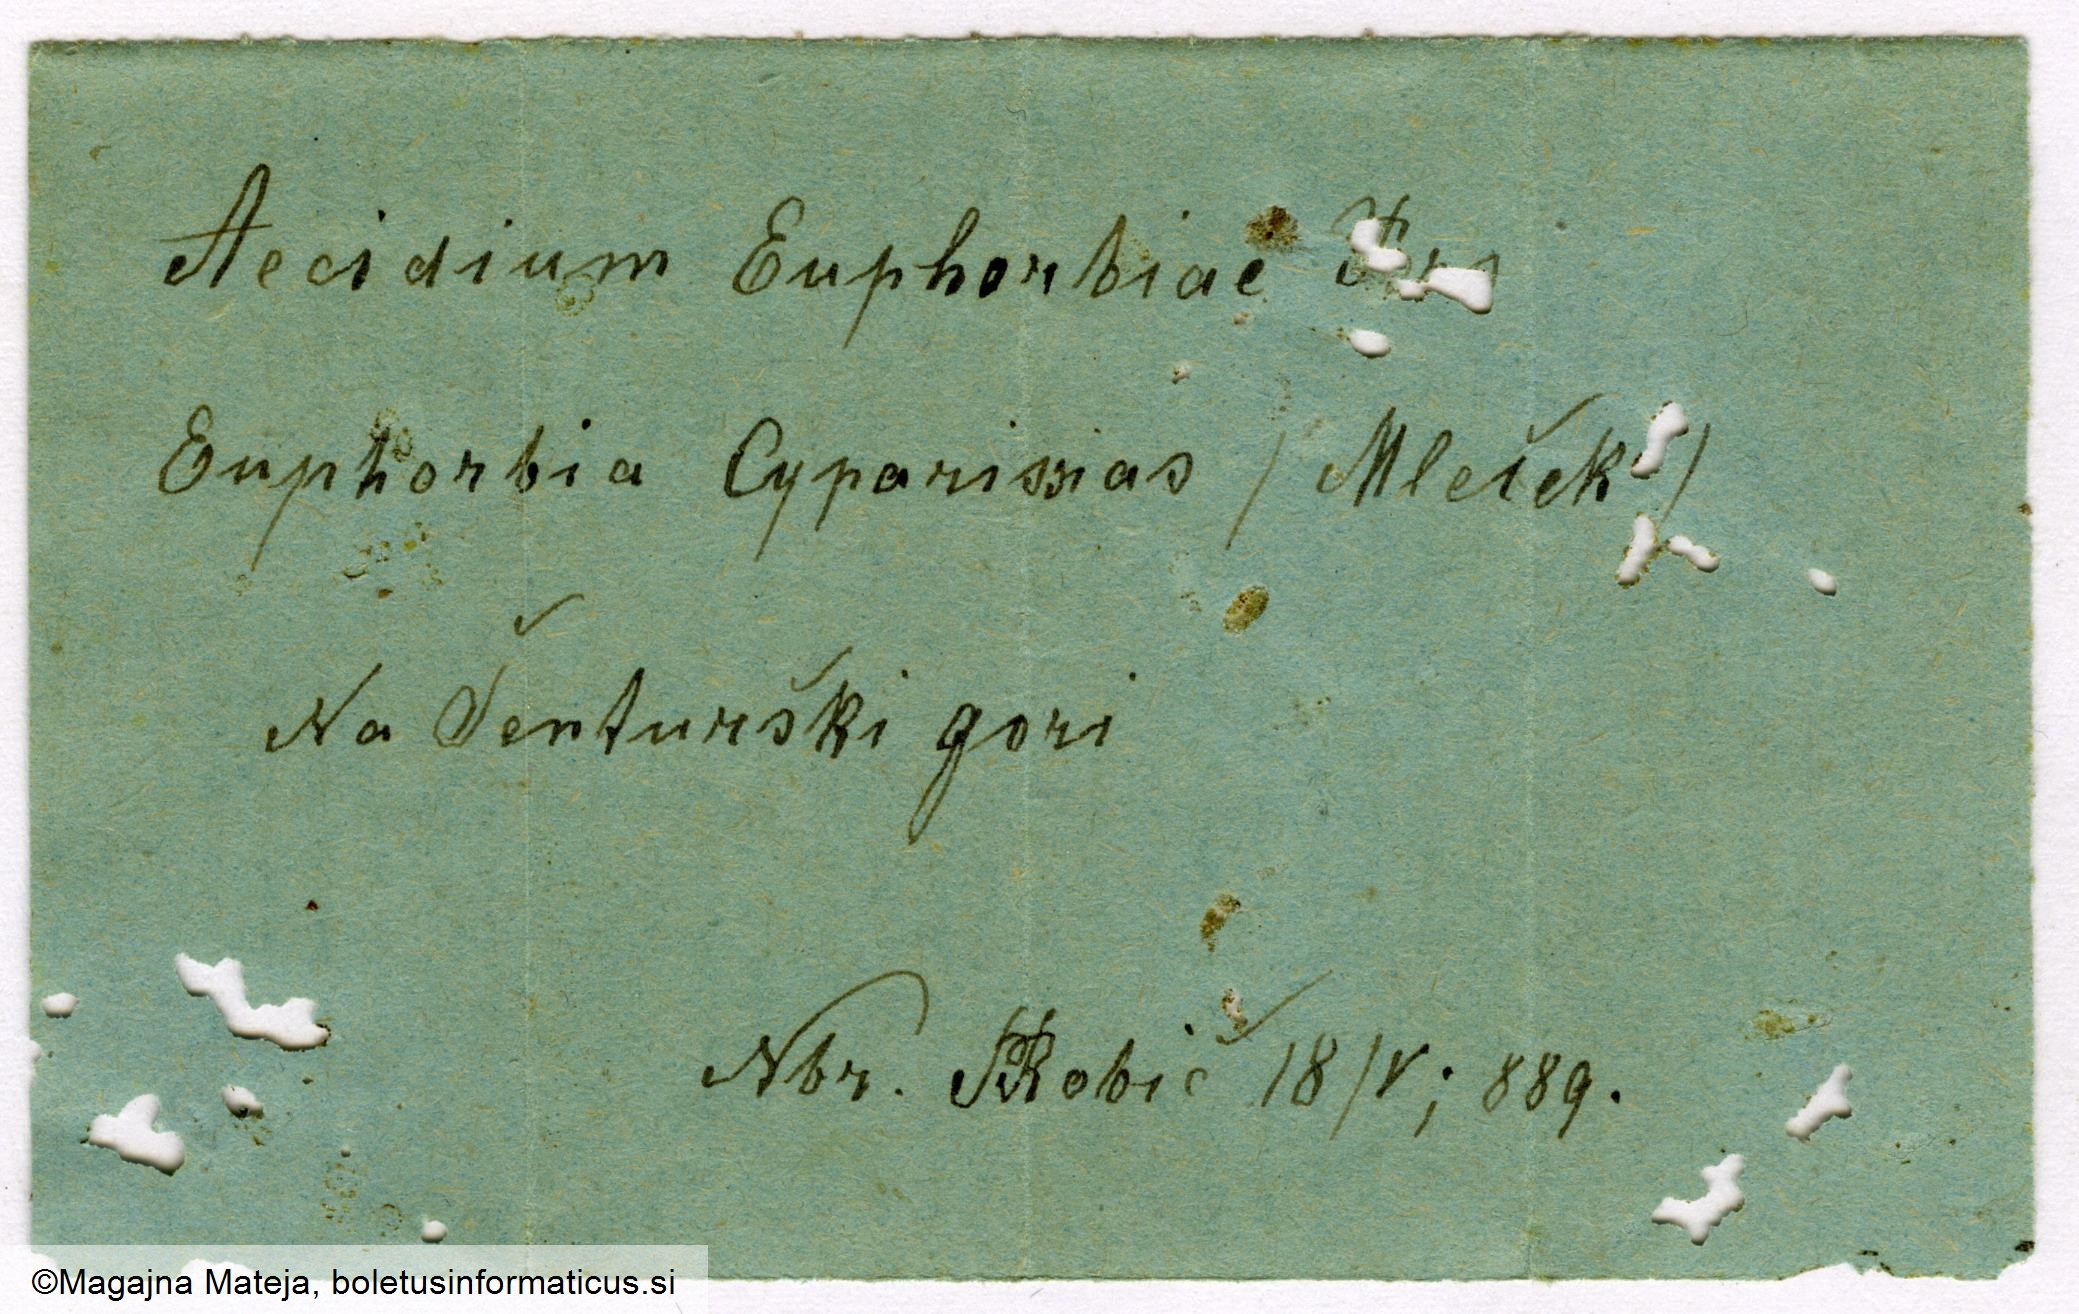 Aecidium Euphorbiae
Euphorbia Cyparissias / Mleček /
Na Šenturški gori
Nbr. SRobič 18/V; 889.
©Magajna Mateja, boletusinformaticus.si